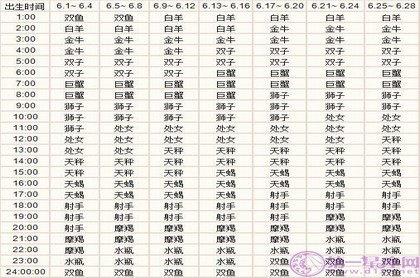 出生时间 6.1~ 6.4 6.5~ 6.8 6.9 ~ 6.12 6.13 ~ 6.16 6.17 ~ 6.20 6.21 ~ 6.24 6.25 ~ 6.28
1:00 双鱼 双鱼 白羊 白羊 白羊 白羊 白羊
2:00 白羊 白羊 白羊 白羊 金牛 金牛 金牛
3:00 金牛 金牛 金牛 金牛 金牛 金牛 金牛
4:00 金牛 金牛 金牛 双子 双子 双子 双子
5:00 双子 双子 双子 双子 双子 双子 双子
6:00 双子 双子 双子 巨蟹 巨蟹 巨蟹 巨蟹
7:00 巨蟹 巨蟹 巨蟹 巨蟹 巨蟹 巨蟹 巨蟹
8:00 巨蟹 巨蟹 巨蟹 巨蟹 巨蟹 狮子 狮子
9:00 狮子 狮子 狮子 狮子 狮子 狮子 狮子
10:00 狮子 狮子 狮子 狮子 狮子 处女 处女
11:00 狮子 处女 处女 处女 处女 处女 处女
12:00 处女 处女 处女 处女 处女 处女 天秤
13:00 处女 处女 天秤 天秤 天秤 天秤 天秤
14:00 天秤 天秤 天秤 天秤 天秤 天秤 天秤
15:00 天秤 天秤 天秤 天秤 天蝎 天蝎 天蝎
16:00 天蝎 天蝎 天蝎 天蝎 天蝎 天蝎 天蝎
17:00 天蝎 天蝎 天蝎 天蝎 射手 射手 射手
18:00 射手 射手 射手 射手 射手 射手 射手
19:00 射手 射手 射手 射手 射手 摩羯 摩羯
20:00 射手 摩羯 摩羯 摩羯 摩羯 摩羯 摩羯
21:00 摩羯 摩羯 摩羯 摩羯 摩羯 水瓶 水瓶
22:00 摩羯 摩羯 水瓶 水瓶 水瓶 水瓶 水瓶
23:00 水瓶 水瓶 水瓶 水瓶 双鱼 双鱼 双鱼
24:00:00 双鱼 双鱼 双鱼 双鱼 双鱼 双鱼 双鱼